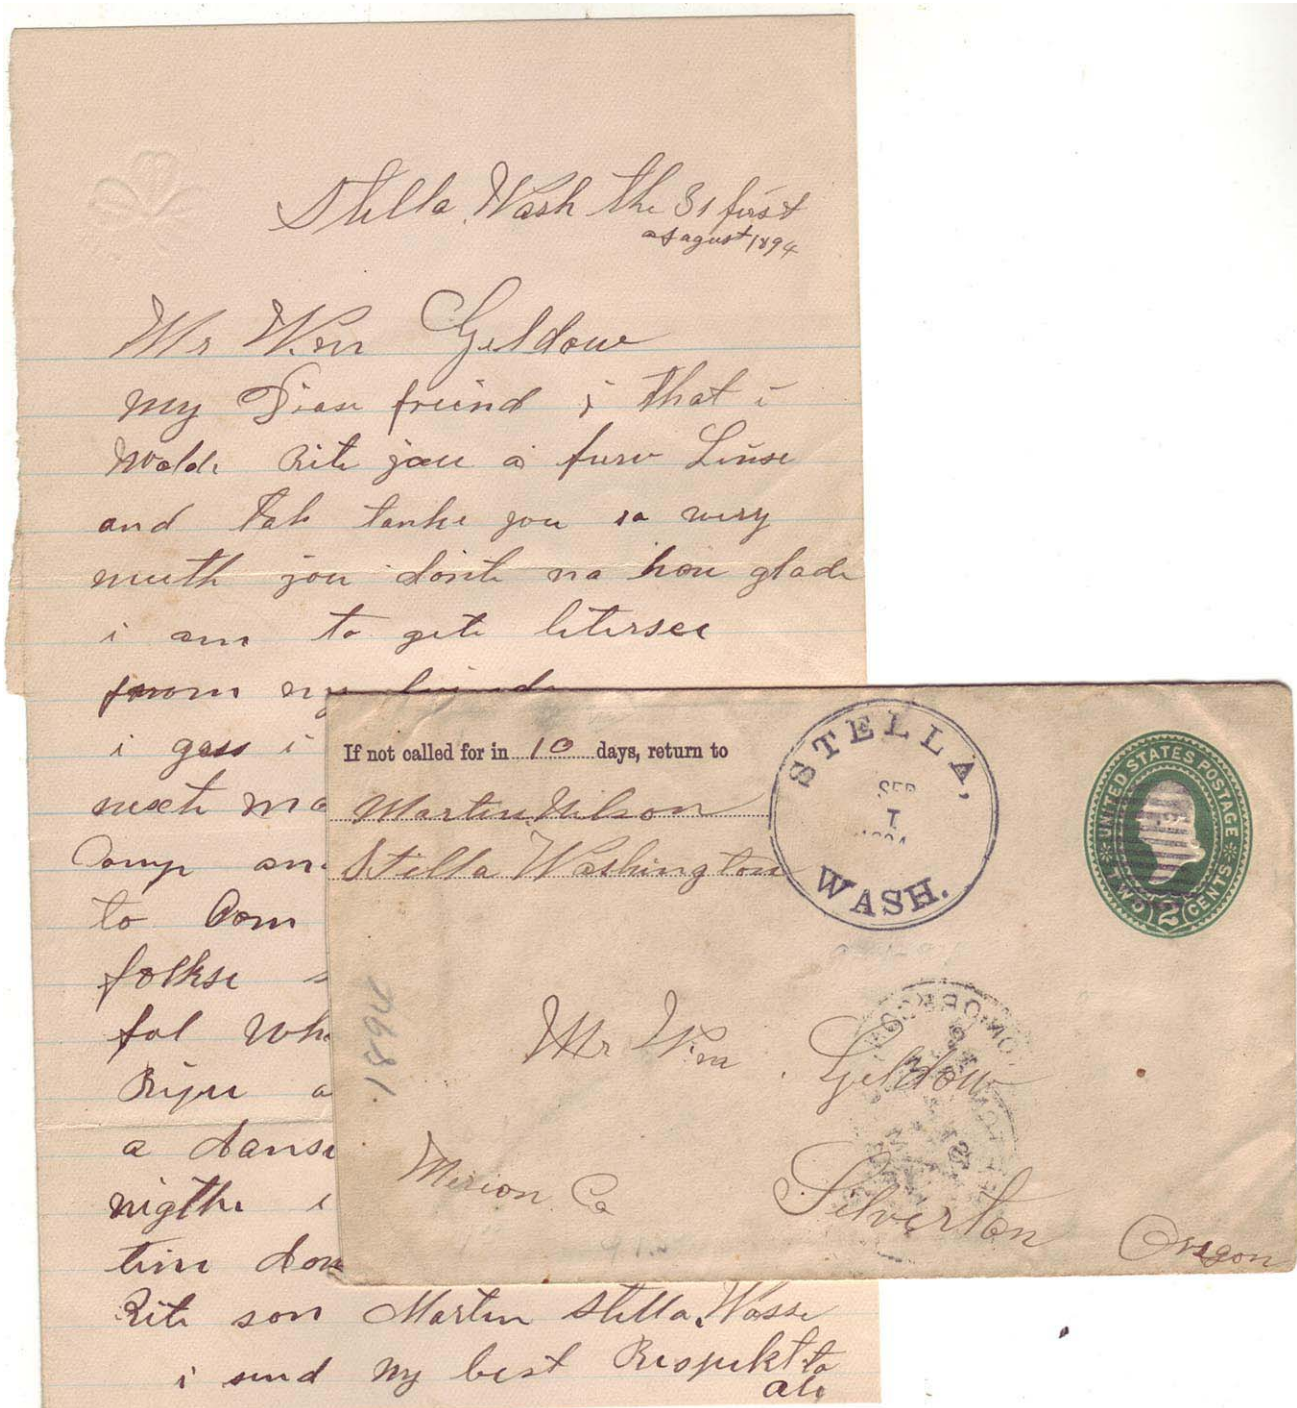 Stella Wash the 31 first
of agust 1894
Mr Wm Geldow
my Diase freind i that i
Wolde Rite jou a fuw Linse
and tak tanke you so wery
muth jou donte no hou glade
i am to gete litersee
from my
i gess i
next
Comp an
to Com
folkse
ful Wh
a
a danse
nigthe i
time don
Rite son Martin Stella Wasse
i send my best Respekt to
ale
If not called for in 10 days, return to
Martin Nilson
Stella Washington
STELLA,
SEP
1
1894
WASH.
UNITED STATES POSTAGE
TWO 2 CENTS
1894
Mr Wm Geldow
Merion Co
Silverton
Oregon